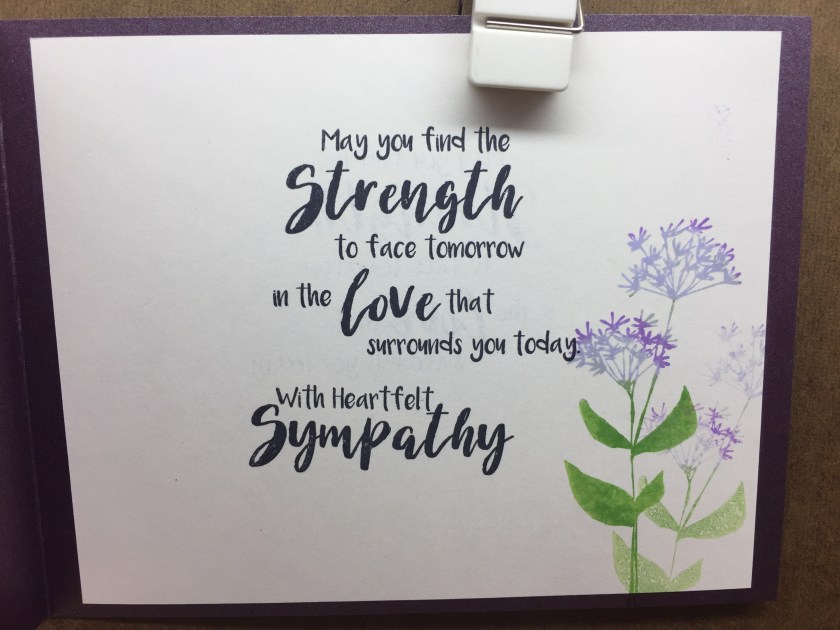 May you find the
Strength
to face tomorrow
in the love that
surrounds you today.
With Heartfelt
Sympathy